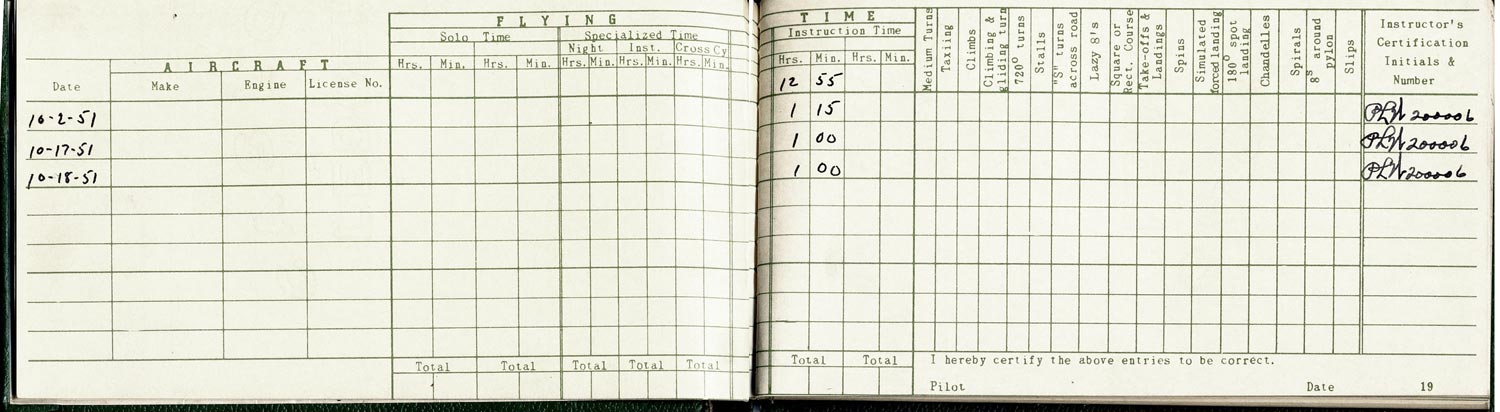 FLYING TIME
Solo Time Specialized Time Instruction Time
Night Inst. Cross Cy
AIRCRAFT Hrs. Min. Hrs. Min. Hrs. Min. Hrs. Min. Hrs. Min. Hrs. Min. Hrs. Min.
Date Make Engine License No.
Medium Turns
Taxiing
Climbs
Climbing &
gliding turn
720° turns
Stalls
"S" turns
across road
Lazy 8's
Square or
Rect. Course
Take-offs &
Landings
Spins
Simulated
forced landing
180° spot
landing
Chandelles
Spirals
8s around
pylon
Slips
Instructor's
Certification
Initials &
Number
12 55
10-2-51 1 15 PLW 200006
10-17-51 1 00 PLW 200006
10-18-51 1 00 PLW 200006
Total Total Total Total Total Total Total
I hereby certify the above entries to be correct.
Pilot Date 19